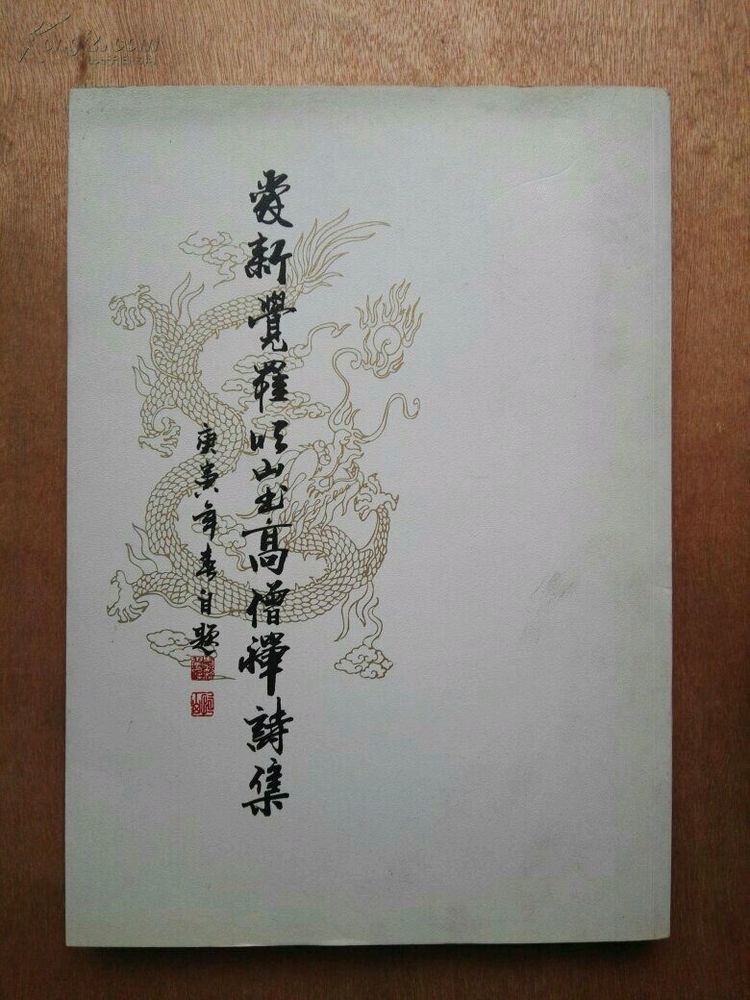 愛新覺羅
山書高僧禪詩集
庚寅年春自題